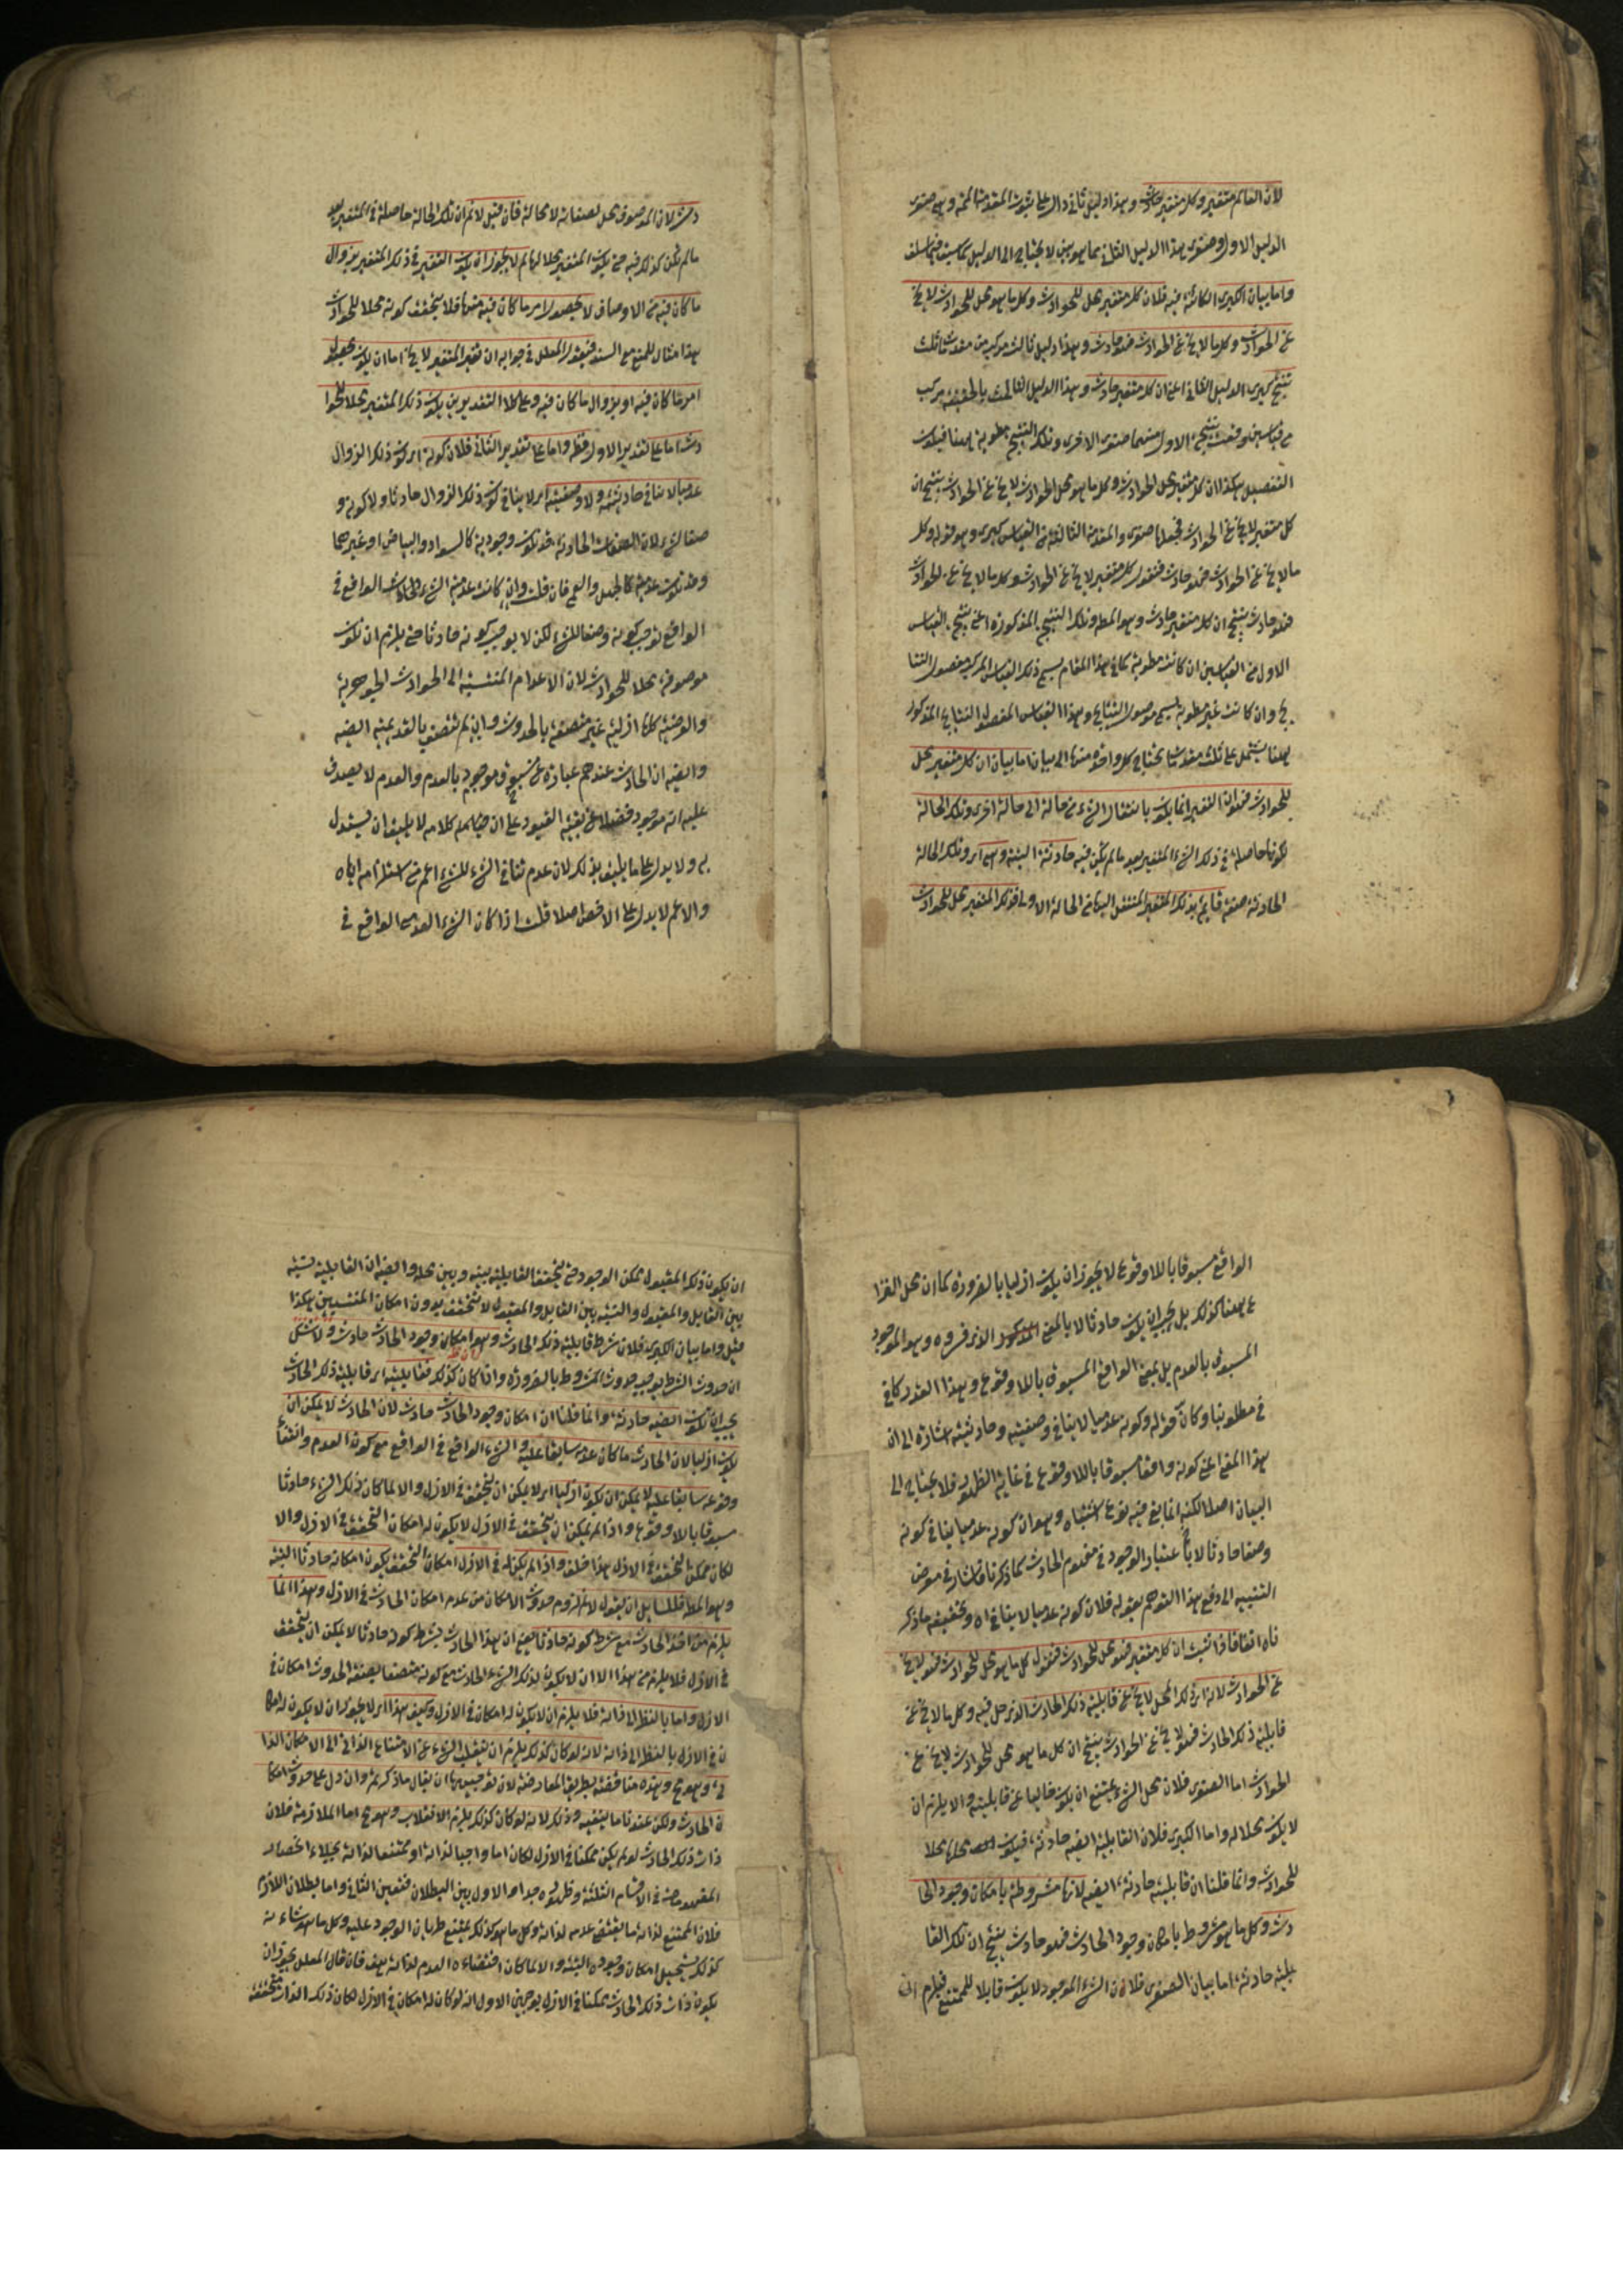 لان العالم متغير وكل متغير حادث وهذا دليل ثاني دال على ثبوت المقدمة الممنوعة وهي صغرى
الدليل الاول وصغرى هذا الدليل الثاني مما هو بين لا يحتاج الى الدليل كما سبق فيما سلف
واما بيان الكبرى الكائنة فيه فلان كل متغير محل للحوادث وكل ما هو محل للحوادث لا يخ
عن الحوادث وكل ما لا يخ عن الحوادث فهو حادث وهذا دليل ثالث مركب من مقدمات ثلث
ينتج كبرى الدليل الثاني اعني ان كل متغير حادث وهذا الدليل الثالث بالحقيقة مركب
من قياسين وقعت نتيجة الاول منهما صغرى الاخرى وتلك النتيجة مطوية ههنا فيكون
التفصيل هكذا لان كل متغير محل للحوادث وكل ما هو محل للحوادث لا يخ عن الحوادث ينتج ان
كل متغير لا يخ عن الحوادث فجعلناها صغرى والمقدمة الثالثة من القياس كبرى وهو قوله وكل
ما لا يخ عن الحوادث فهو حادث فنقول كل متغير لا يخ عن الحوادث وكل ما لا يخ عن الحوادث
فهو حادث ينتج ان كل متغير حادث وهو المط وتلك النتيجة المذكورة اعني نتيجة القياس
الاول من القياسين ان كانت مطوية كما في هذا المقام يسمى ذلك القياس المركب مفصول النتا
يج وان كانت غير مطوية يسمى موصول النتايج وهذا القياس المفصول النتايج المذكور
ههنا يشتمل على ثلث مقدمات يحتاج كل واحدة منها الى بيان اما بيان ان كل متغير محل
للحوادث فهو ان التغير انما يكون بانتقال الشيء من حالة الى حالة اخرى وتلك الحالة
لكونها حاصلة في ذلك الشيء المتغير بعد ما لم يكن فيه حادثة البتة وهي اي وتلك الحالة
الحادثة صفة قايمة بذلك المتغير المنتقل اليها من الحالة الاولى فذلك المتغير محل للحوادث
دث لان الموصوف محل لصفاته لا محالة فان قيل لا نم ان تلك الحالة حاصلة في المتغير بعد
ما لم يكن كذلك فيه حتى يكون المتغير محلا لها لم لا يجوز ان يكون التغير في ذلك المتغير بزوال
ما كان فيه من الاوصاف لا بحصول امر ما كان فيه منها فلا يتحقق كونه محلا للحوادث
هذا مثال للمنع مع السند فيقول المعلل في جوابه ان تغير المتغير لا يخ اما ان يكون بحصول
امر ما كان فيه او بزوال ما كان فيه وعلى كلا التقديرين يكون ذلك المتغير محلا للحوا
دث اما على تقدير الاول فظ واما على تقدير الثاني فلان كونه اي كون ذلك الزوال
عدميا لا ينافي حادثيته ولا وصفيته اي لا ينافي كون ذلك الزوال حادثا ولا كونه و
صفا لشيء لان الصفات الحادثة قد تكون وجودية كالسواد والبياض او غيرهما
وقد تكون عدمية كالجهل والعمى فان قلت وان كانت عدمية الشيء الحادث الواقع في
الواقع توجب كونه وصفا للشيء لكن لا يوجب كونه حادثا حتى يلزم ان يكون
موصوفه محلا للحوادث لان الاعدام المنتسبة الى الحوادث الجوهرية
والعرضية كلها ازلية غير متصفة بالحدوث وان لم تتصف بالقديمية ايضه
وايضه ان الحادث عندهم عبارة عن مسبوق موجود بالعدم والعدم لا يصدق
عليه انه موجود فضلا عن بقية القيود على ان ضم كلامه لا يليق ان يستدل
به ولا يدل على ما يليق بذلك لان عدم تنافي الشيء للشيء اعم من استلزامه اياه
والاعم لا يدل على الاخص اصلا قلت اذا كان الشيء العدمي الواقع في
الواقع مسبوقا باللاوقوع لا يجوز ان يكون ازليا بالضرورة كما ان محل النزا
ع ههنا كذلك بل يجب ان يكون حادثا لا بالمعنى المذكور الذي قرروه وهو الموجود
المسبوق بالعدم بل بمعنى الواقع المسبوق باللاوقوع وهذا القدر كاف
في مطلوبنا وكان قوله وكونه عدميا لا ينافي وصفيته وحادثيته اشارة الى ان
هذا المعنى اعني كونه واقعا مسبوقا باللاوقوع في غاية الظهور فلا يحتاج الى
البيان اصلا لكنه انما يقع فيه نوع اشتباه وهو ان كونه عدميا ينافي كونه
وصفا حادثا لا باعتبار الوجود في مفهوم الحادث كما ذكرنا فاشار في معرض
التنبيه الى دفع هذا التوهم بقوله فلان كونه عدميا لا ينافي اه وتحقيقه ما ذكر
ناه انفا فاذا ثبت ان كل متغير فهو محل للحوادث فنقول كل ما هو محل للحوادث فهو لا يخ
عن الحوادث لانه اي ذلك المحل لا يخ عن قابلية ذلك الحادث الذي حل فيه وكل ما لا يخ عن
قابلية ذلك الحادث فهو لا يخ عن الحوادث ينتج ان كل ما هو محل للحوادث لا يخ عن
الحوادث اما الصغرى فلان محل الشيء يمتنع ان يكون خاليا عن قابليته والا يلزم ان
لا يكون محلا له واما الكبرى فلان القابلية ايضه حادثة فيكون محلها محلا
للحوادث وانما قلنا ان قابليته حادثة ايضه لانها مشروطة بامكان وجود الحا
دث وكل ما هو مشروط بامكان وجود الحادث فهو حادث ينتج ان تلك القا
بلية حادثة اما بيان الصغرى فلان الشيء الموجود لا يكون قابلا للممتنع فيلزم
ان يكون ذلك المقبول ممكن الوجود حتى يتحقق القابلية بينه وبين محله وايضه ان القابلية نسبة
بين القابل والمقبول والنسبة بين القابل والمقبول لا تتحقق بدون امكان المنتسبين هكذا
قيل واما بيان الكبرى فلان شرط قابلية ذلك الحادث وهو امكان وجود الحادث حادث ولا شك
ان حدوث الشرط يوجب حدوث المشروط بالضرورة واذا كان كذلك فقابليته اي قابلية ذلك الحادث
يجب ان تكون ايضه حادثة وانما قلنا ان امكان وجود الحادث حادث لان الحادث لا يمكن ان
يكون ازليا لان الحادث ما كان عدمه سابقا عليه والشيء الواقع في الواقع مع كون العدم وانتفاء
وقوعه سابقا عليه لا يمكن ان يكون ازليا اي لا يمكن ان يتحقق في الازل والا لما كان ذلك الشيء حادثا
مسبوقا باللاوقوع واذا لم يمكن ان يتحقق في الازل لا يكون له امكان التحقق في الازل والا
لكان ممكن التحقق في الازل هذا خلف واذا لم يكن له في الازل امكان التحقق يكون امكانه حادثا البتة
وهو المط فللسايل ان يقول لا نم لزوم حدوث الامكان من عدم امكان الحادث في الازل وهذا انما
يلزم من اخذ الحادث مع شرط كونه حادثا يعني ان هذا الحادث بشرط كونه حادثا لا يمكن ان يتحقق
في الازل فلا يلزم من هذا الا ان لا يكون لذلك الشيء الحادث مع كونه متصفا بصفة الحدوث امكان في
الازل واما بالنظر الى ذاته فلا يلزم ان لا يكون له امكان في الازل وكيف هذا اي لا يجوز ان لا يكون له امكا
ن في الازل بالنظر الى ذاته لانه لو كان كذلك يلزم ان ينقلب الشيء من الامتناع الذاتي الى الامكان الذا
تي وهو مح وهذه مناقضة بطريق المعارضة لان توجيهها ان يقال ما ذكرتم وان دل على حدوث امكا
ن الحادث ولكن عندنا ما ينفيه وذلك لانه لو كان كذلك يلزم الانقلاب وهو مح اما الملازمة فلان
ذات ذلك الحادث لو لم يكن ممكنا في الازل لكان اما واجبا لذاته او ممتنعا لذاته بجلاء انحصار
المفهومات في الاقسام الثلثة وظهوره جدا والاول بين البطلان فتعين الثاني واما بطلان اللازم
فلان الممتنع لذاته ما يقتضي عدمه لذاته وكل ما هو كذلك يمتنع طريان الوجود عليه وكل ما هو شانه
كذلك يستحيل امكان وجوده البتة والا لما كان اقتضاءه العدم لذاته هف فان قال المعلل يجوز ان
يكون ذات ذلك الحادث ممكنا في الازل بوجهين الاول انه لو كان له امكان في الازل لكان ذلك الذات متحققة